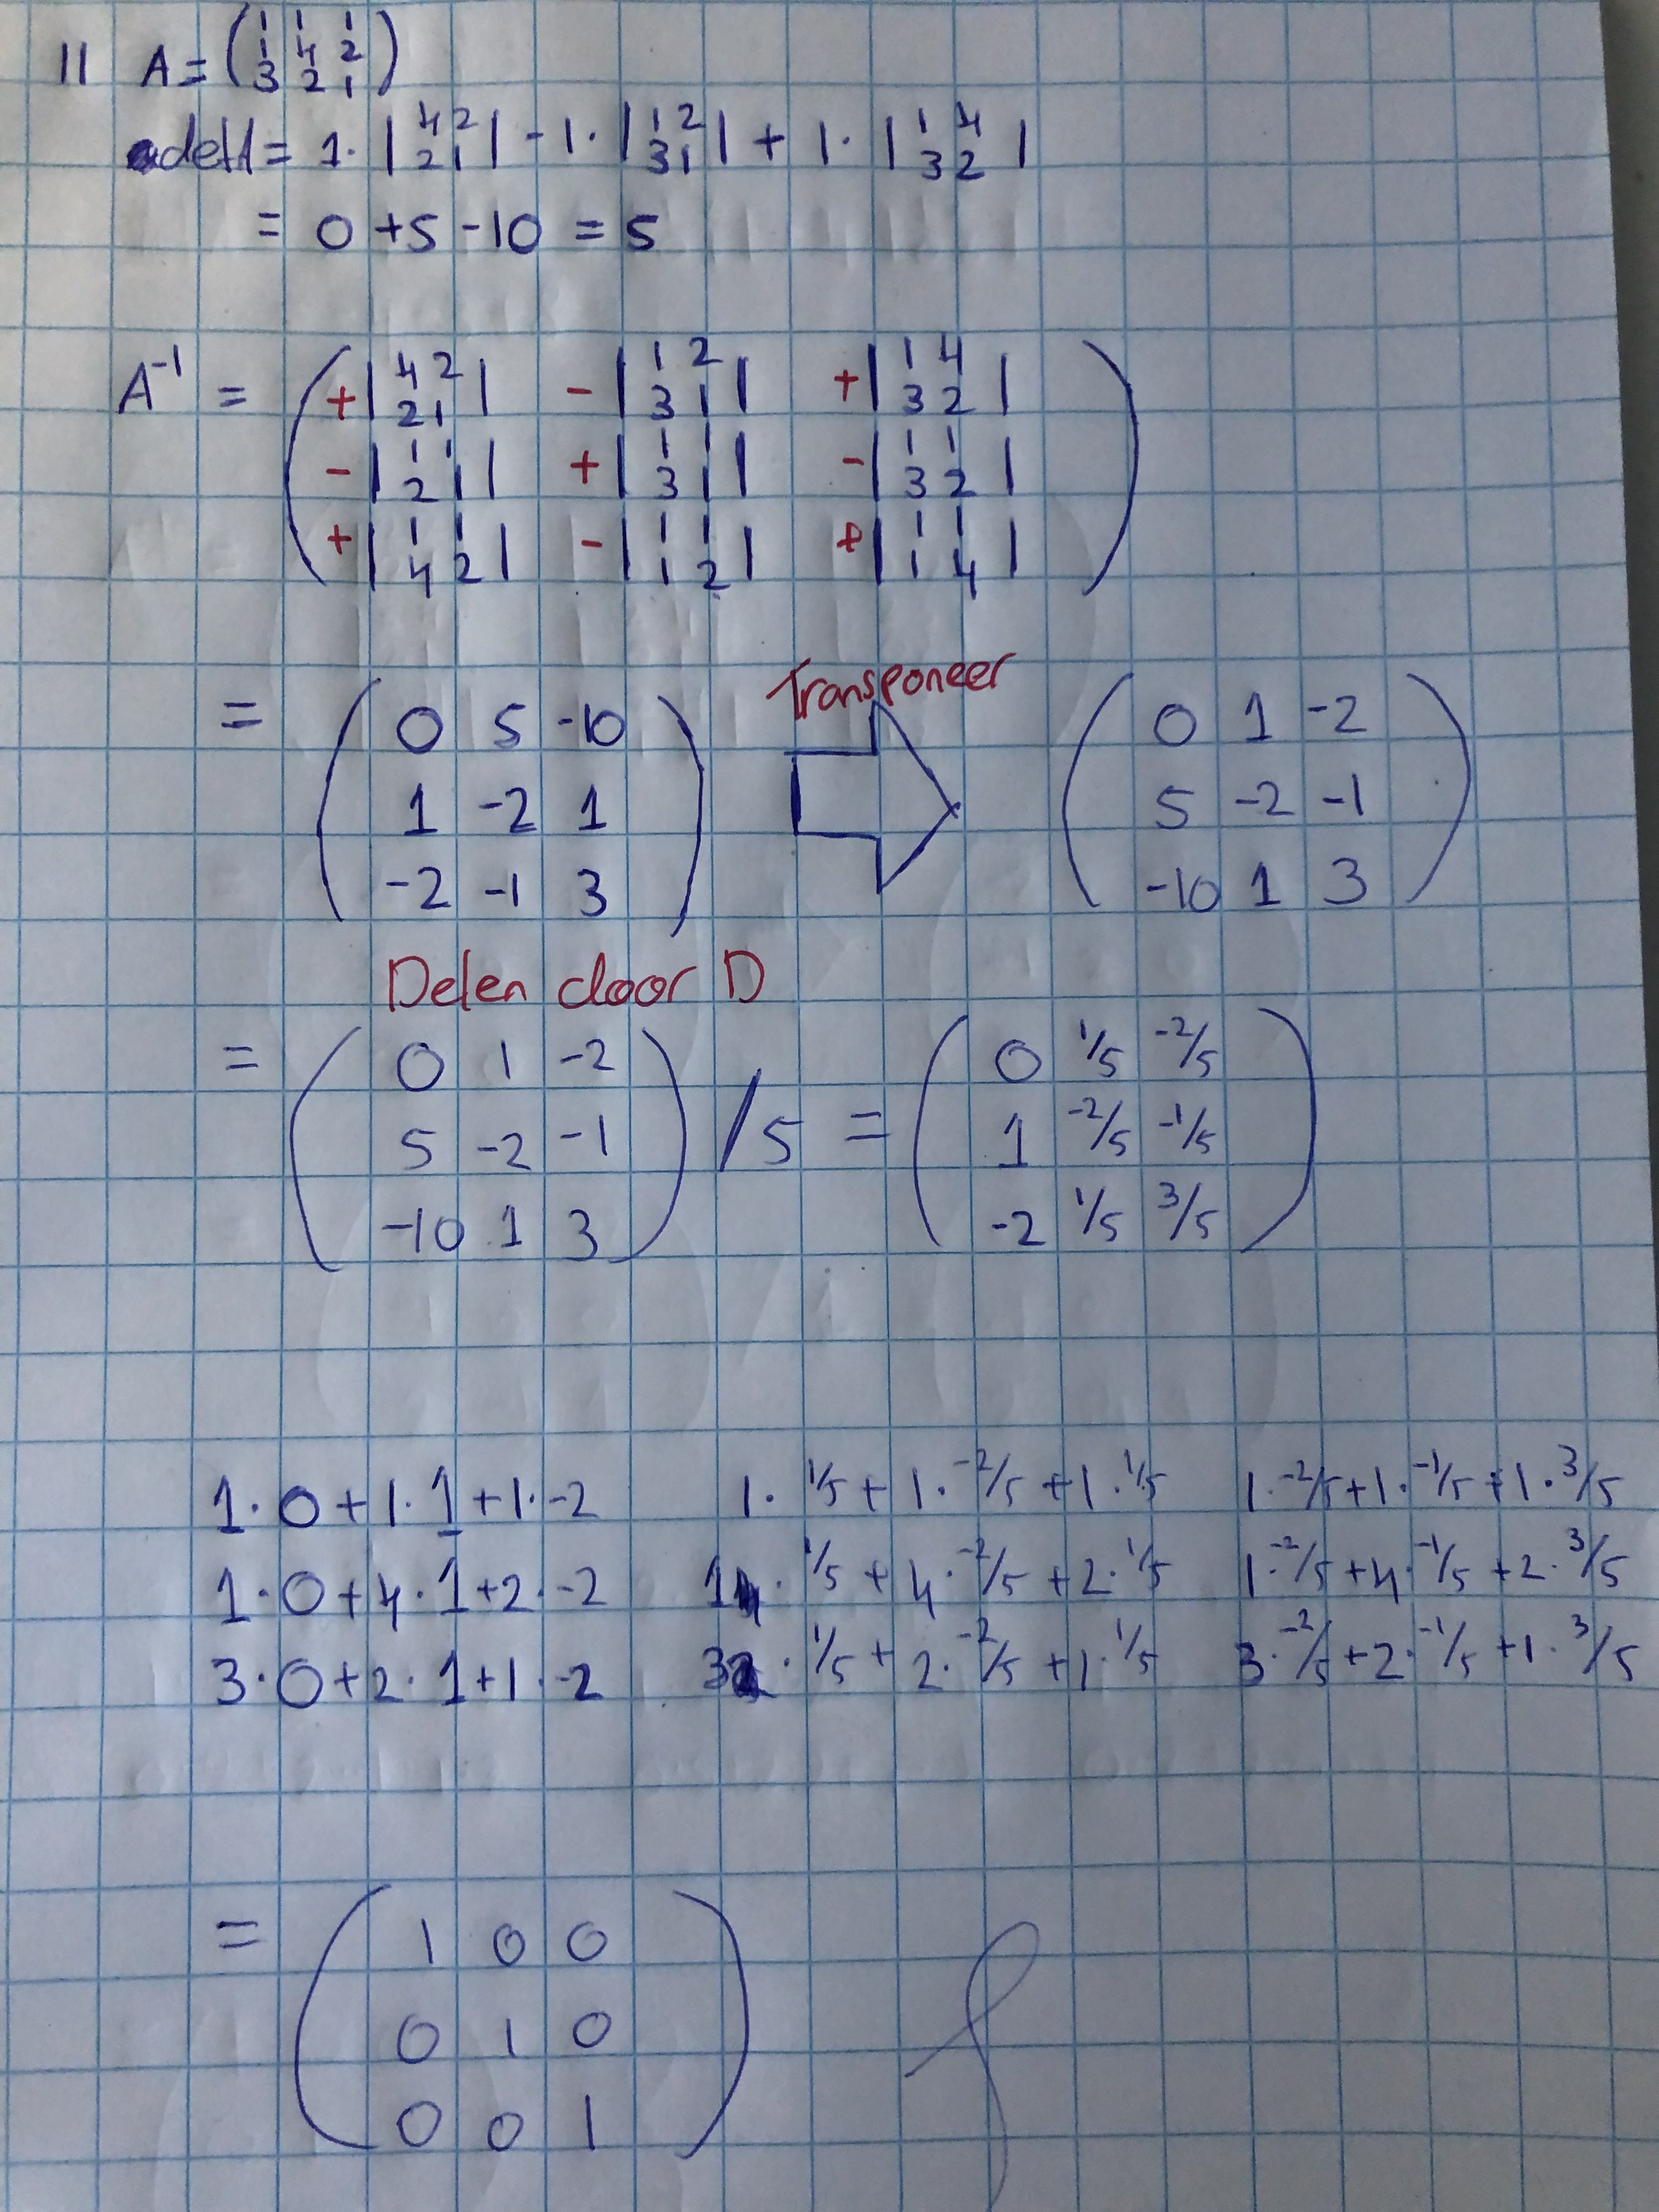 11 A = ( 1 1 1
1 4 2
3 2 1 )
detA = 1· | 4 2 | - 1· | 1 2 | + 1· | 1 4 |
2 1 3 1 3 2
= 0 + 5 - 10 = 5
A⁻¹ = ( + | 4 2 | - | 1 2 | + | 1 4 |
2 1 3 1 3 2
- | 1 1 | + | 1 1 | - | 1 1 |
2 1 3 1 3 2
+ | 1 1 | - | 1 1 | + | 1 1 | )
4 2 1 2 1 4
Transponeer
= ( 0 5 -10 ) ( 0 1 -2 )
1 -2 1 5 -2 -1
-2 -1 3 -10 1 3
Delen door D
= ( 0 1 -2 ) ( 0 1/5 -2/5 )
5 -2 -1 / 5 = 1 -2/5 -1/5
-10 1 3 -2 1/5 3/5
1·0+1·1+1·-2 1·1/5+1·-2/5+1·1/5 1·-2/5+1·-1/5+1·3/5
1·0+4·1+2·-2 1·1/5+4·-2/5+2·1/5 1·-2/5+4·-1/5+2·3/5
3·0+2·1+1·-2 3·1/5+2·-2/5+1·1/5 3·-2/5+2·-1/5+1·3/5
= ( 1 0 0
0 1 0
0 0 1 )